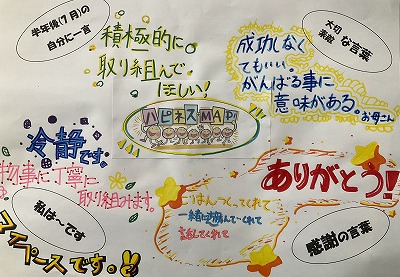 半年後(7月)の
自分に一言
積極的に
取り組んで
ほしい!
大切
素敵 な言葉
成功しなく
てもいい。
がんばる事に
意味がある。
お母さん
ハピネスMAP
冷静です。
物事に丁寧に
取り組みます。
私は〜です
マイペースです。
ありがとう!
ごはんつくってくれて
一緒に遊んでくれて
話してくれて
感謝の言葉